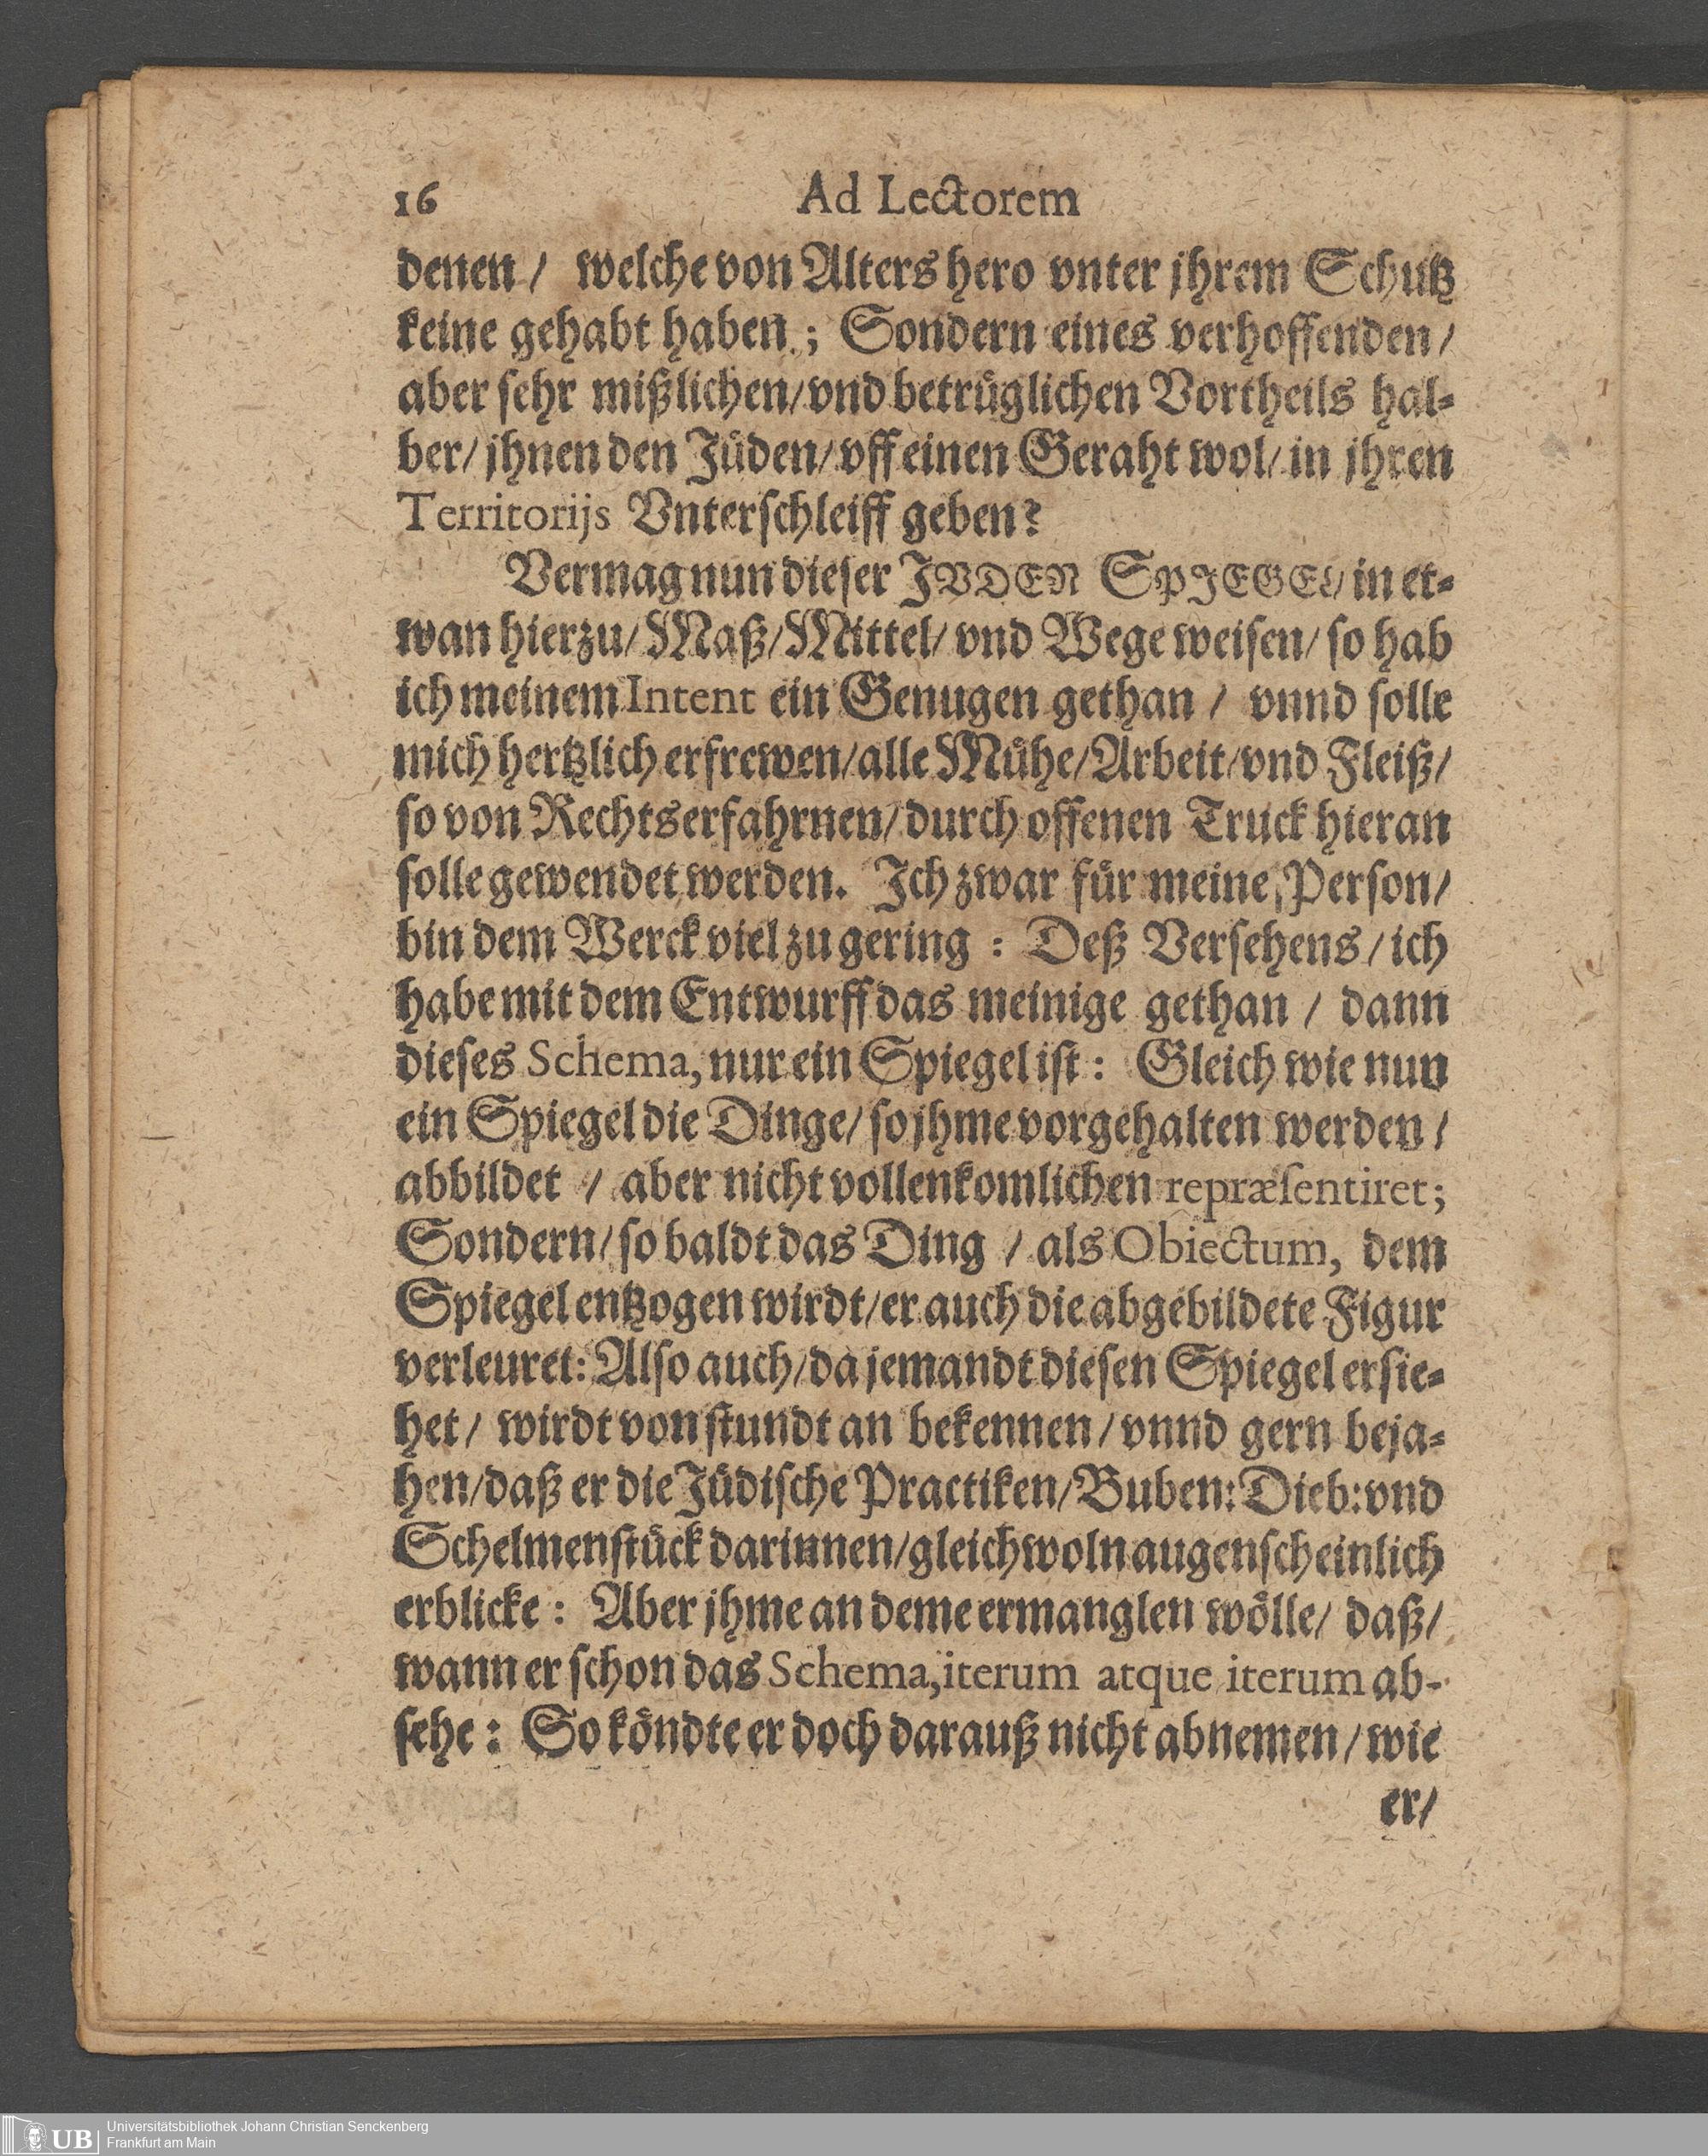 16 Ad Lectorem
denen / welche von Alters hero vnter jhrem Schutz
keine gehabt haben ; Sondern eines verhoffenden /
aber sehr mißlichen / vnd betrüglichen Vortheils hal-
ber / jhnen den Jüden / vff einen Geraht wol / in jhren
Territorijs Vnterschleiff geben?
Vermag nun dieser JVDEN SPJEGEL / in et-
wan hierzu / Maß / Mittel / vnd Wege weisen / so hab
ich meinem Intent ein Genugen gethan / vnnd solle
mich hertzlich erfrewen / alle Mühe / Arbeit / vnd Fleiß /
so von Rechtserfahrnen / durch offenen Truck hieran
solle gewendet werden. Ich zwar für meine Person /
bin dem Werck viel zu gering : Deß Versehens / ich
habe mit dem Entwurff das meinige gethan / dann
dieses Schema, nur ein Spiegel ist : Gleich wie nun
ein Spiegel die Dinge / so jhme vorgehalten werden /
abbildet / aber nicht vollenkomlichen repræsentiret ;
Sondern / so baldt das Ding / als Obiectum, dem
Spiegel entzogen wirdt / er auch die abgebildete Figur
verleuret : Also auch / da jemandt diesen Spiegel ersie-
het / wirdt von stundt an bekennen / vnnd gern beja-
hen / daß er die Jüdische Practiken / Buben: Dieb: vnd
Schelmenstück darinnen / gleichwoln augenscheinlich
erblicke : Aber jhme an deme ermanglen wölle / daß /
wann er schon das Schema, iterum atque iterum ab-
sehe : So köndte er doch darauß nicht abnemen / wie
er /
UB Universitätsbibliothek Johann Christian Senckenberg
Frankfurt am Main